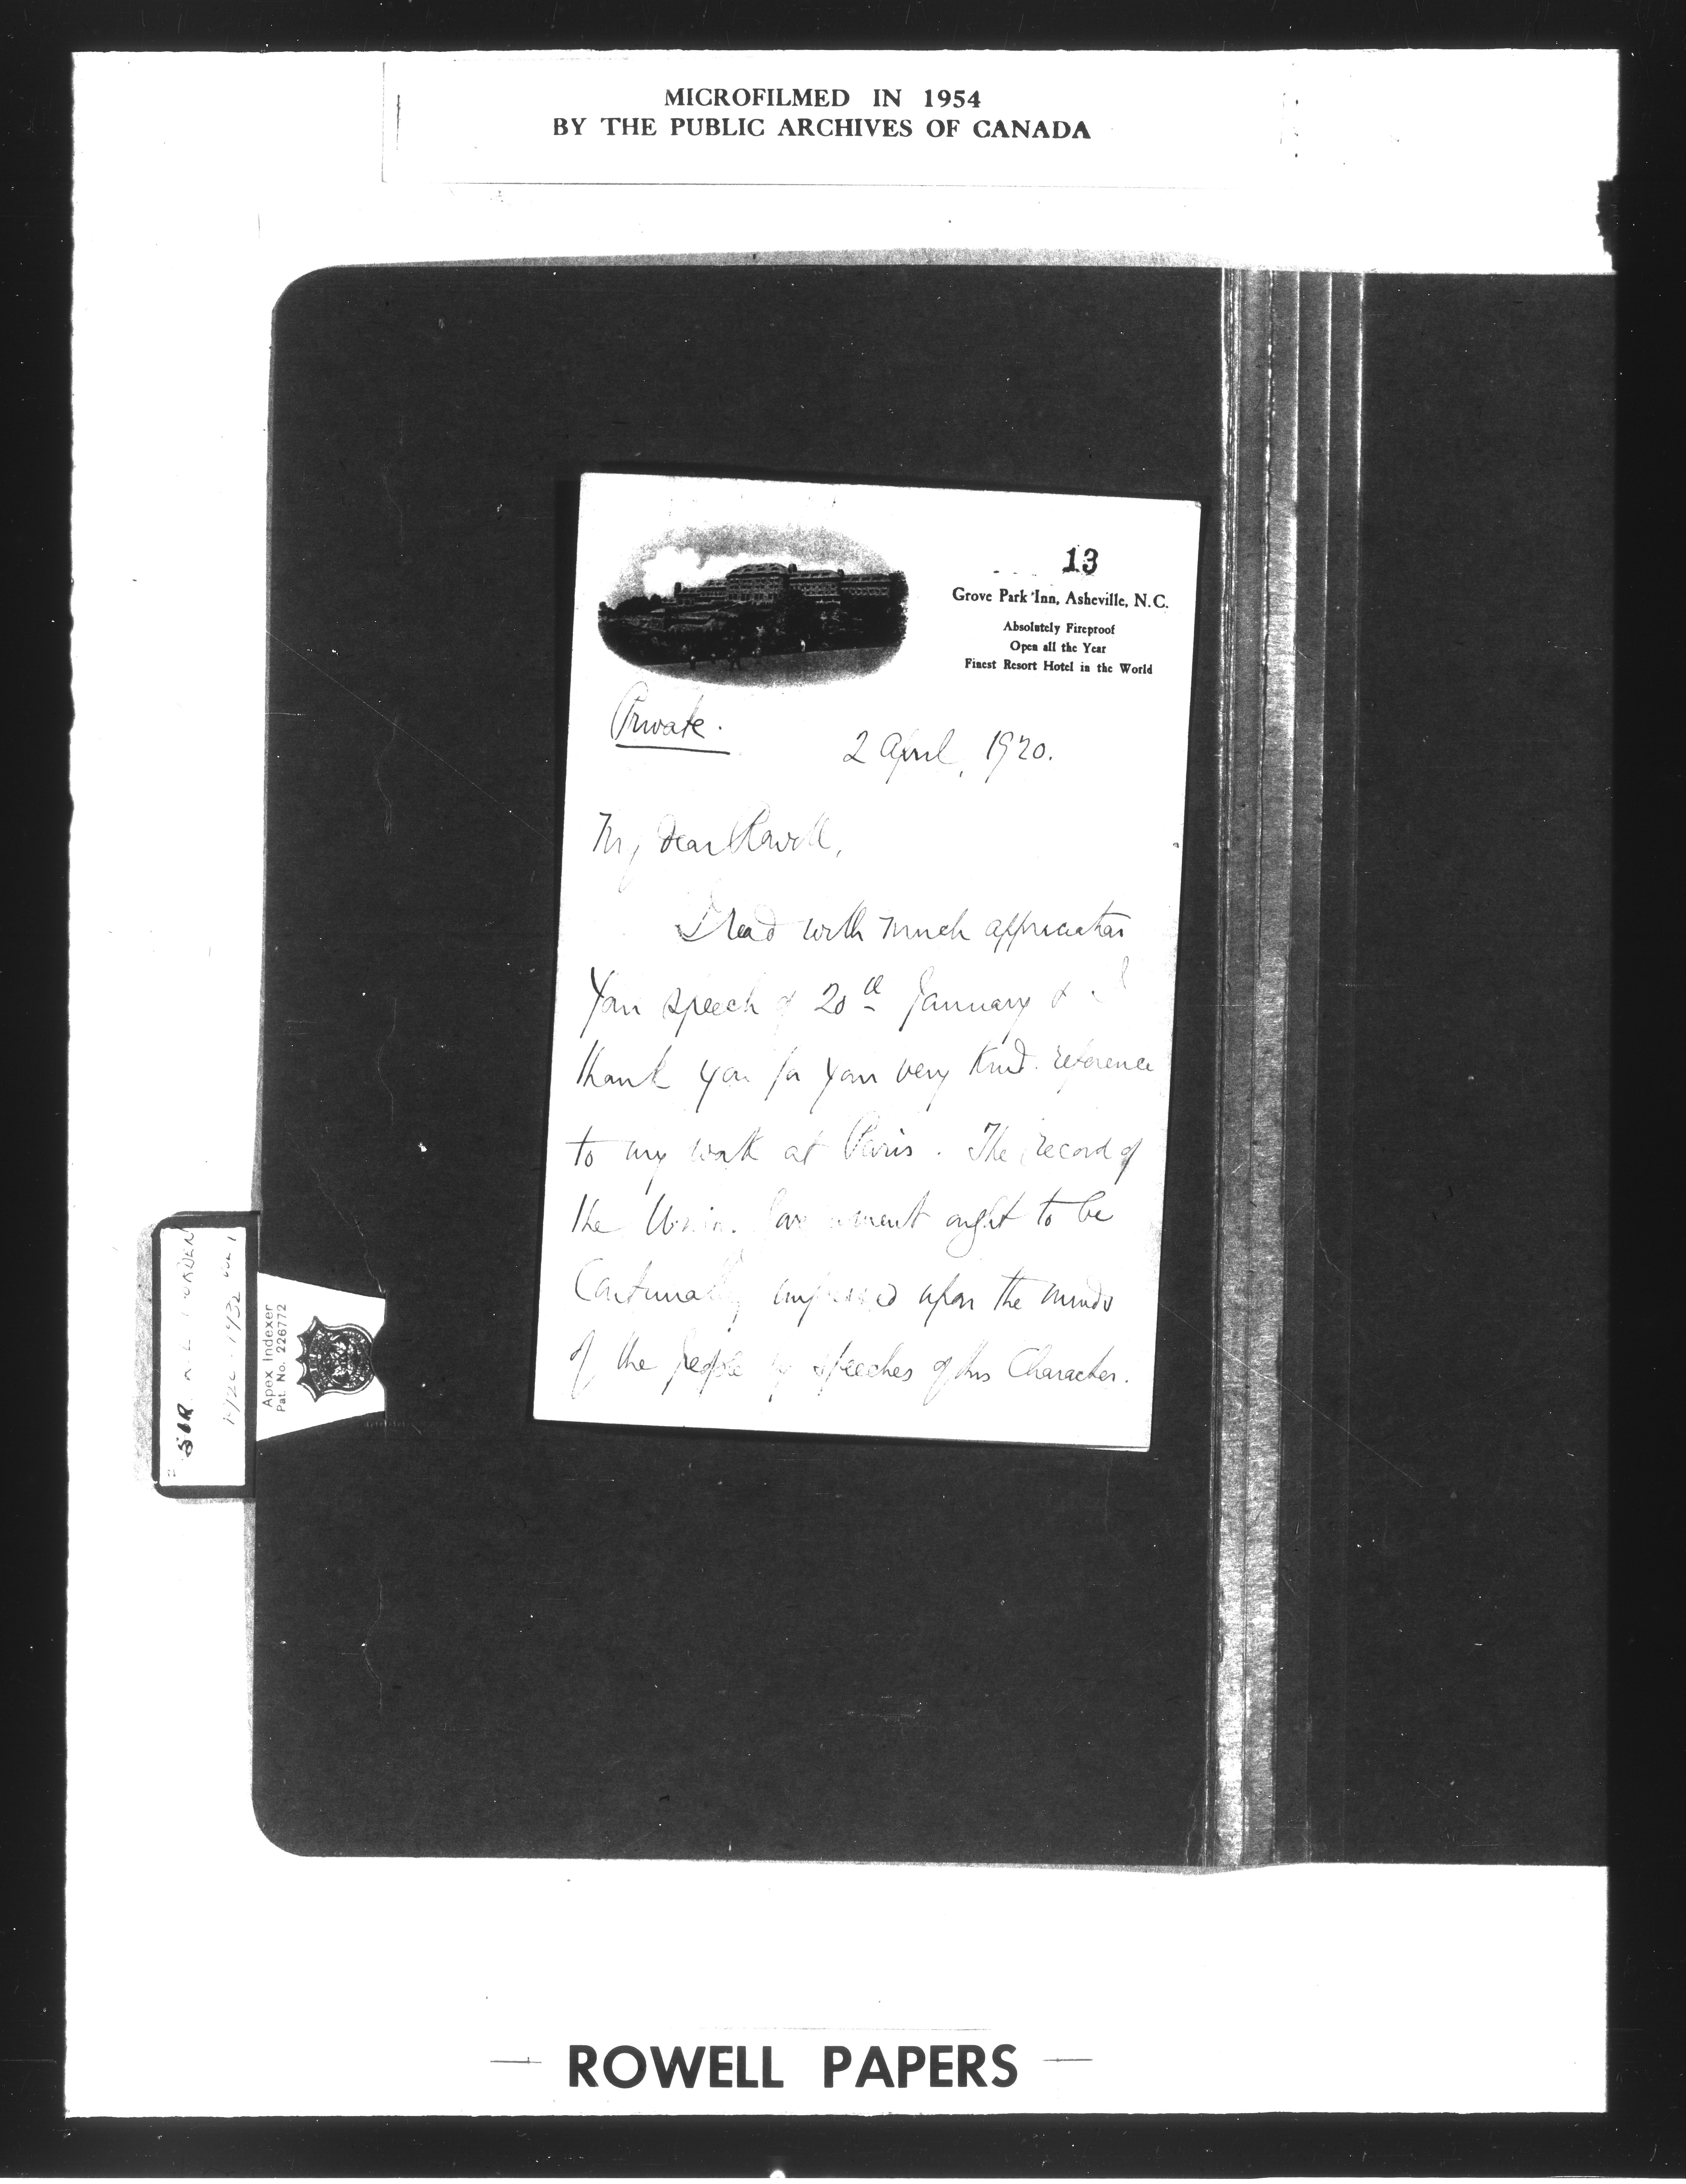 MICROFILMED IN 1954
BY THE PUBLIC ARCHIVES OF CANADA
13
Grove Park Inn, Asheville, N.C.
Absolutely Fireproof
Open all the Year
Finest Resort Hotel in the World
Private.
2 April, 1920.
My dear Rowell,
I read with much appreciation
your speech of 20th January & I
thank you for your very kind reference
to my work at Paris. The record of
the Union Government ought to be
Continually impressed upon the minds
of the people by speeches of this Character.
SIR R L BORDEN
1920-1932
Apex Indexer
Pat. No. 226772
ROWELL PAPERS